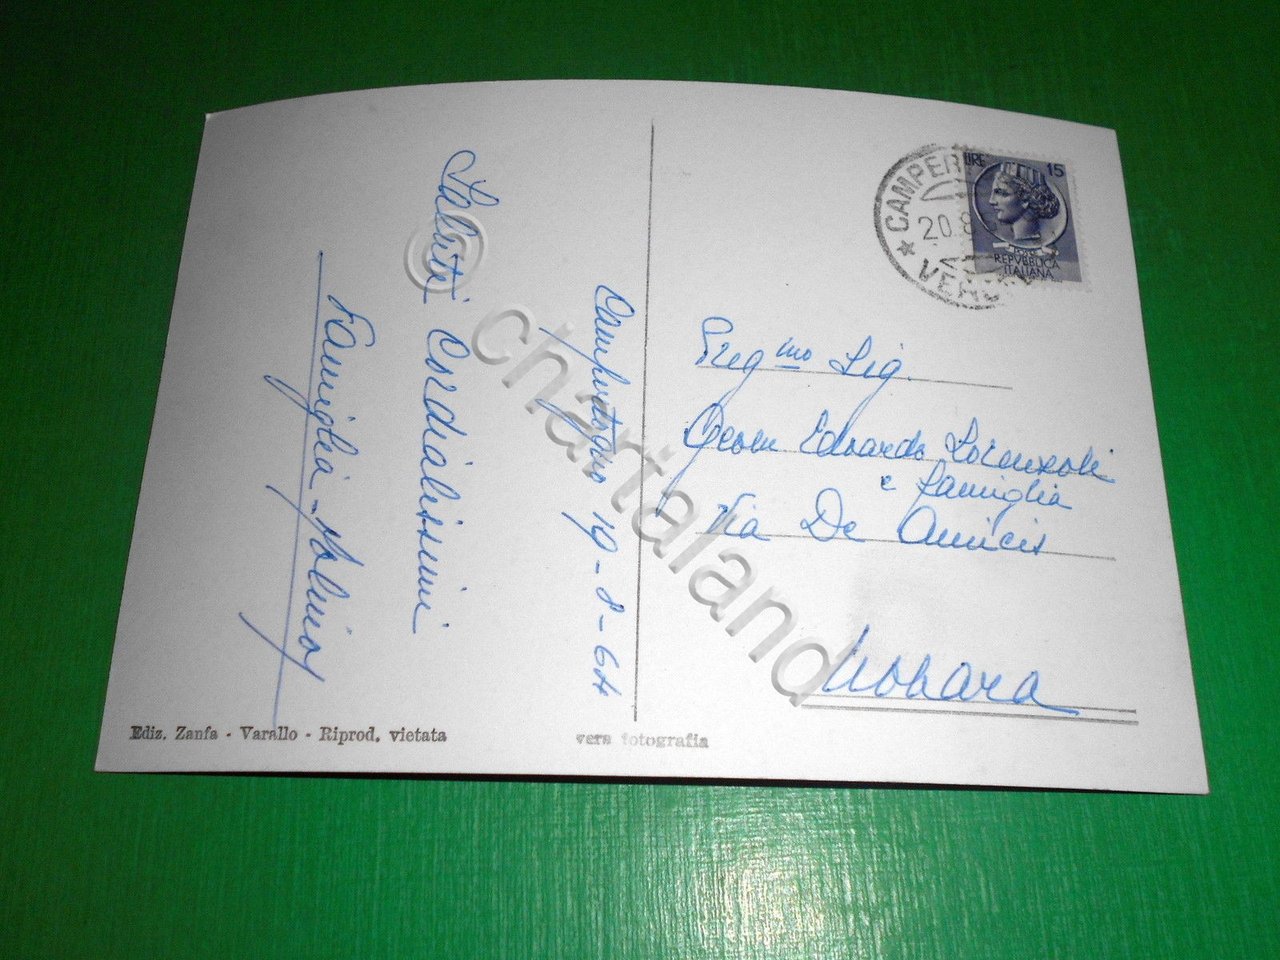 Saluti Cordialissimi
Famiglia
19-8-64
LIRE 15
REPVBBLICA
ITALIANA
CAMPER
20.8
VER
Preg.mo Sig.
Edoardo
e famiglia
Via De Amicis
Novara
Ediz. Zanfa - Varallo - Riprod. vietata
vera fotografia
© chartaland